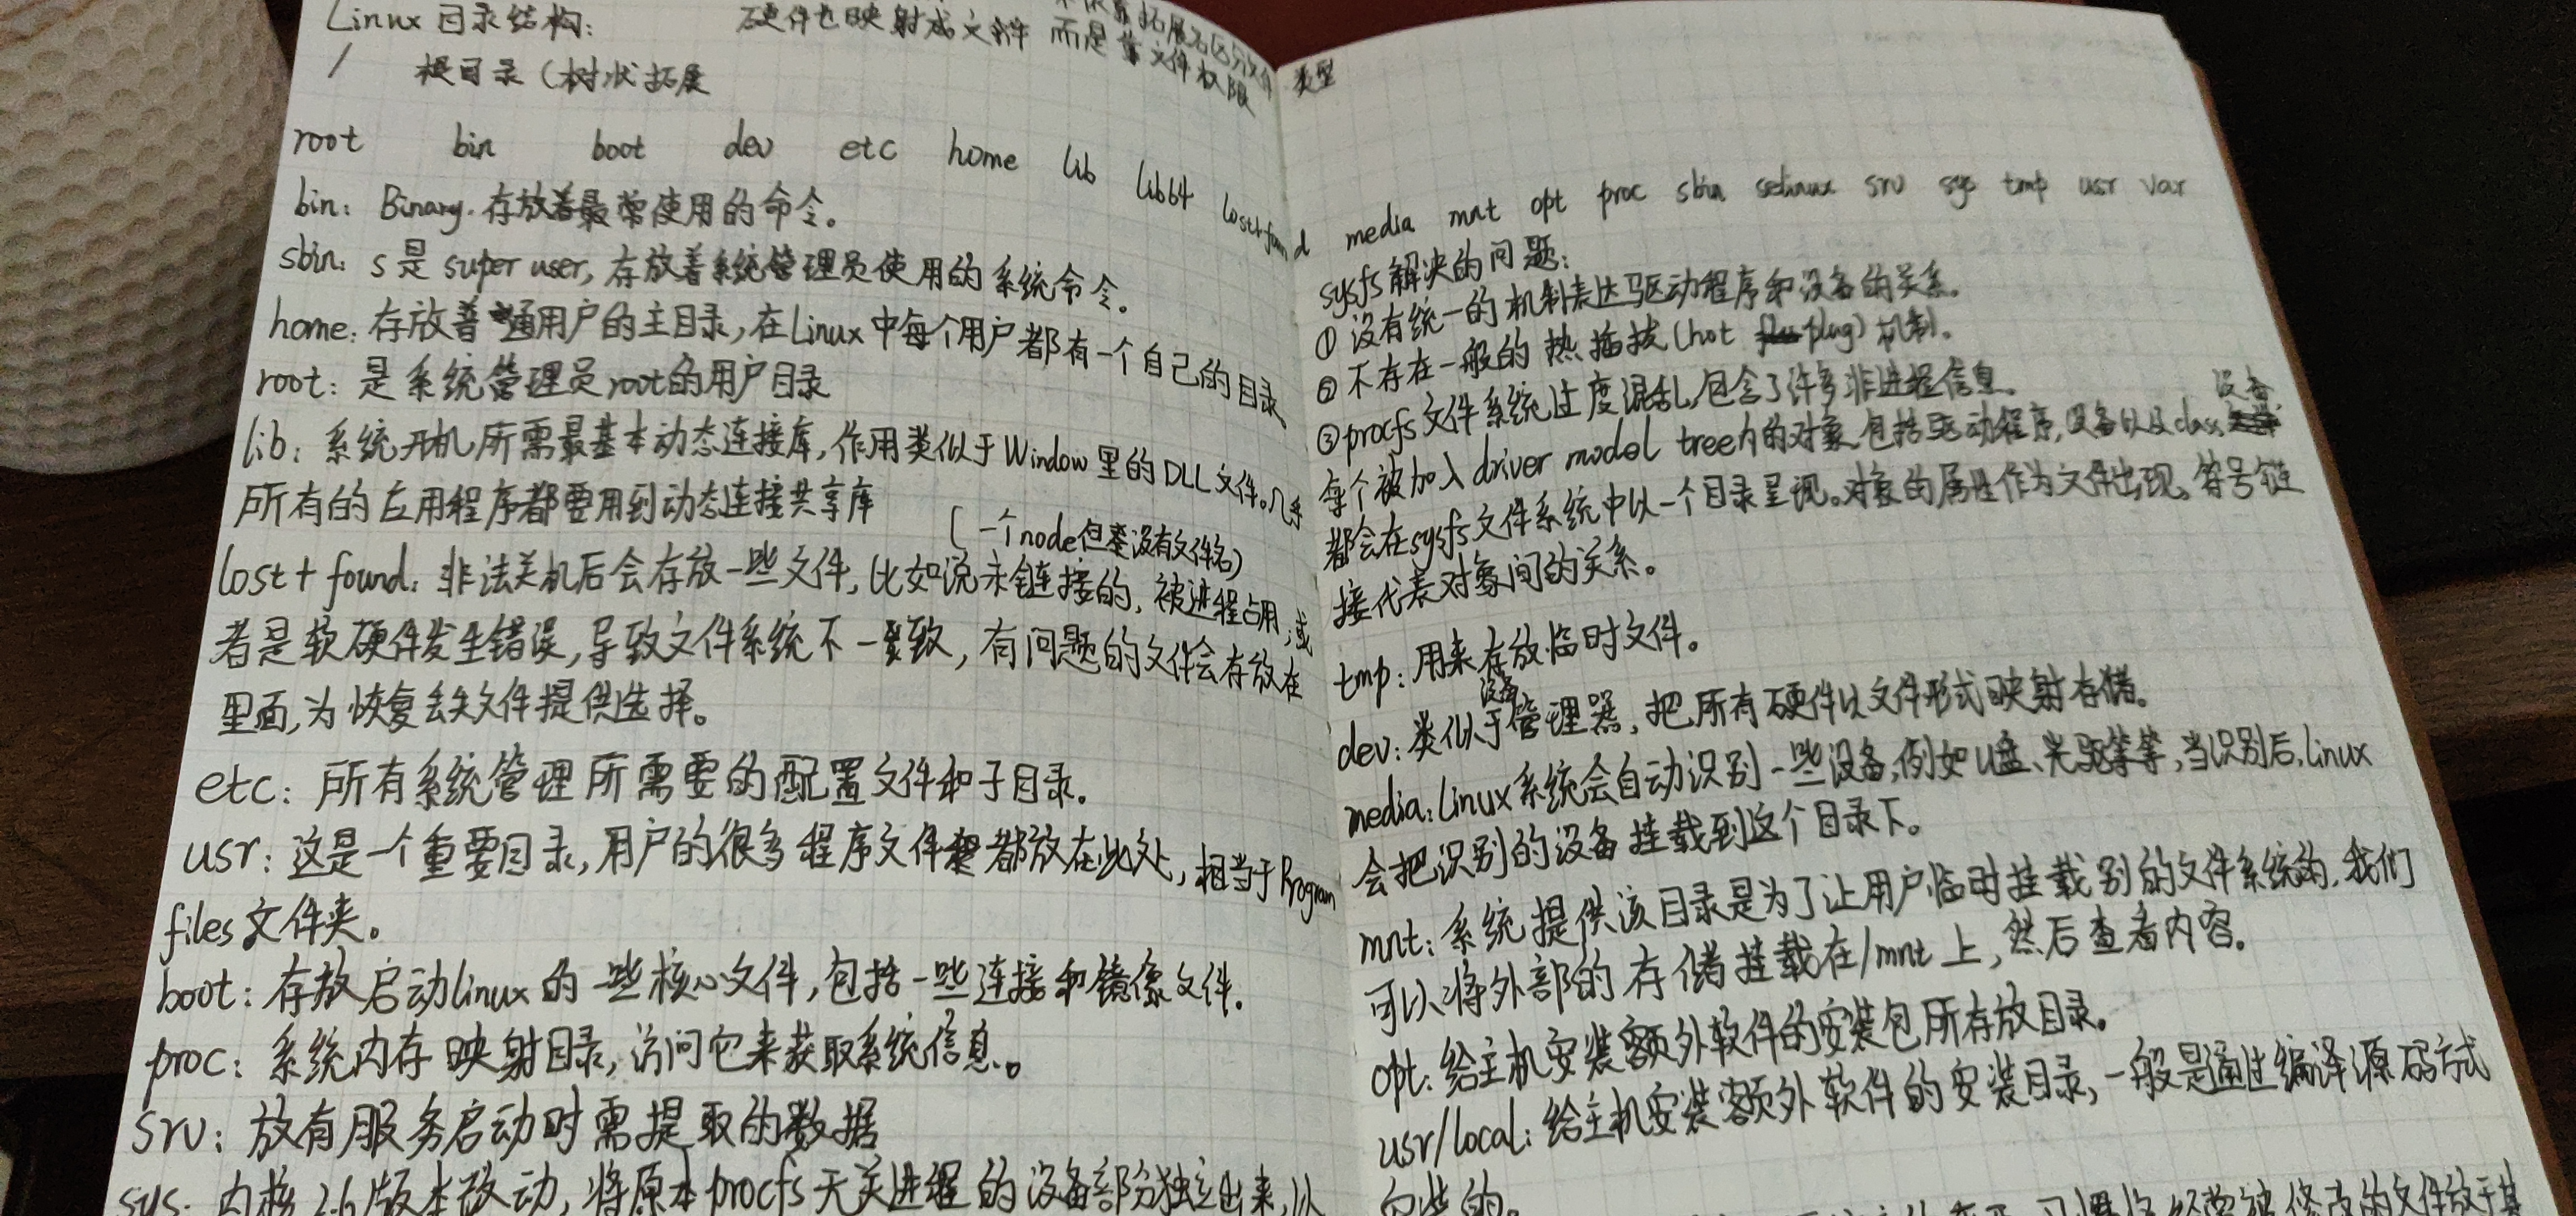 Linux 目录结构:
硬件也映射成文件 而是靠文件权限
拓展名区分文件类型
/ 根目录 (树状拓展
root bin boot dev etc home lib lib64 lost+found media mnt opt proc sbin selinux srv sys tmp usr var
bin: Binary. 存放着最常使用的命令。
sbin: s 是 super user, 存放着系统管理员使用的系统命令。
home: 存放普通用户的主目录,在Linux中每个用户都有一个自己的目录、
root: 是系统管理员root的用户目录
lib: 系统开机所需最基本动态连接库,作用类似于Window里的DLL文件。几乎
所有的应用程序都要用到动态连接共享库
(一个node但没有文件名)
lost + found: 非法关机后会存放一些文件,比如说未链接的,被进程占用,或
者是软硬件发生错误,导致文件系统不一致,有问题的文件会存放在
里面,为恢复丢失文件提供选择。
etc: 所有系统管理所需要的配置文件和子目录。
usr: 这是一个重要目录,用户的很多程序文件都放在此处,相当于Program
files文件夹。
boot: 存放启动linux的一些核心文件,包括一些连接和镜像文件.
proc: 系统内存映射目录,访问它来获取系统信息。
srv: 放有服务启动时需提取的数据
sys: 内核2.6版本改动,将原本procfs无关进程的设备部分独立出来,以
sysfs解决的问题:
① 没有统一的机制表达驱动程序和设备的关系。
② 不存在一般的热插拔(hot plug)机制.
③ procfs文件系统过度混乱,包含了许多非进程信息。
每个被加入driver model tree内的对象 包括驱动程序,设备以及class设备
都会在sysfs文件系统中以一个目录呈现。对象的属性作为文件出现。符号链
接代表对象间的关系。
tmp: 用来存放临时文件。
dev: 类似于设备管理器,把所有硬件以文件形式映射存储。
media: Linux系统会自动识别一些设备,例如U盘、光驱等等,当识别后,linux
会把识别的设备挂载到这个目录下。
mnt: 系统提供该目录是为了让用户临时挂载别的文件系统的,我们
可以将外部的存储挂载在/mnt上,然后查看内容。
opt: 给主机安装额外软件的安装包所存放目录。
usr/local: 给主机安装额外软件的安装目录,一般是通过编译源码方式
安装的。
经常被修改的文件放于其